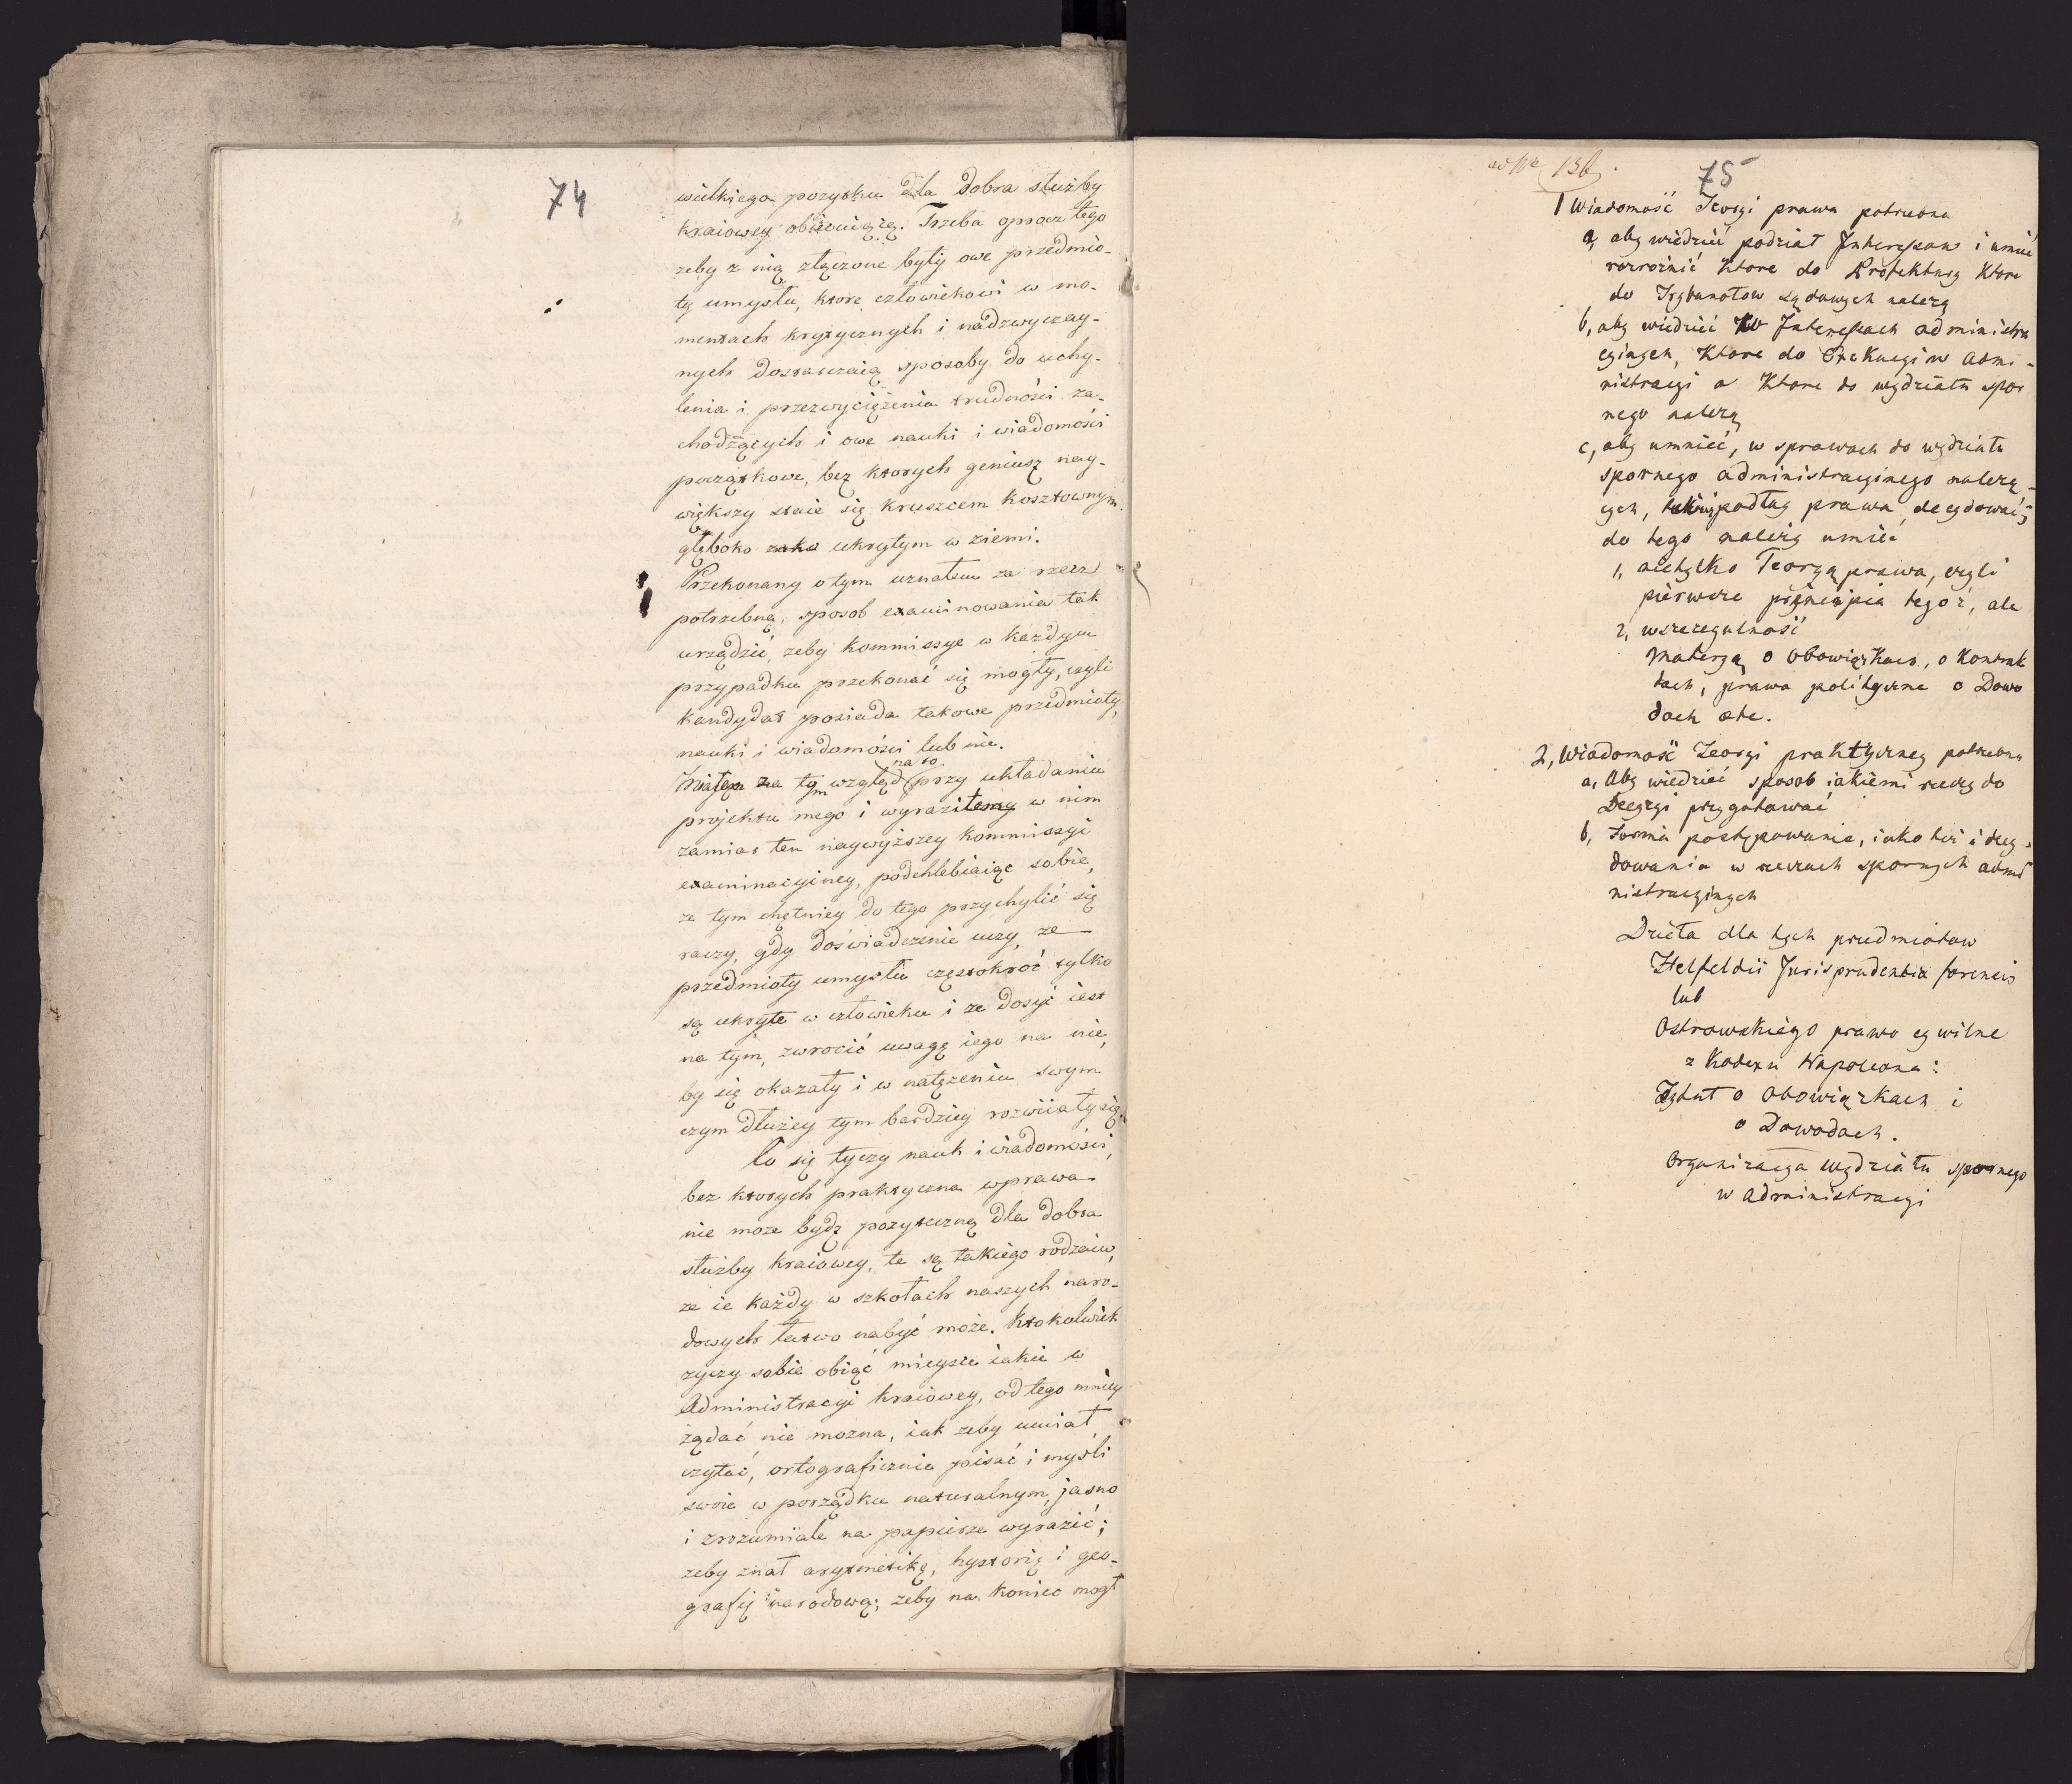 74
wielkiego pozytku dla dobra służby
kraiowey obiecuiącą. Trzeba oprocz tego
zeby z nią złączone były owe przedmio-
ty umysłu, ktore człowiekowi w mo-
mentach krytycznych i nadzwyczay-
nych dostarczaią sposoby do uchy-
lenia i przezwyciężenia trudności za-
chodzących i owe nauki i wiadomości
początkowe, bez ktorych geniusz nay-
większy staie się kruszcem kosztownym
głęboko ukrytym w ziemi.
Przekonany o tym uznałem za rzecz
potrzebną, sposob examinowania tak
urządzić, zeby Kommissye w każdym
przypadku przekonać się mogły, czyli
kandydat posiada takowe przedmioty,
nauki i wiadomości lub nie.
na to
Miałem za tym wzgląd przy układaniu
projektu mego i wyraziłem w nim
zamiar ten naywyższey Kommissyi
examinacyiney, podchlebiaiąc sobie,
ze tym chętniey do tego przychylić się
raczy, gdy doświadczenie uczy, ze
przedmioty umysłu częstokroć tylko
są ukryte w człowieku i ze dosyć iest
na tym, zwrocić uwagę iego na nie,
by się okazały i w natężeniu swym
czym dłużey tym bardziey rozwiiały się.
Co się tyczy nauk i wiadomości,
bez ktorych praktyczna wprawa
nie moze bydz pozyteczną dla dobra
służby kraiowey, te są takiego rodzaiu,
ze ie każdy w szkołach naszych naro-
dowych łatwo nabyć może. Ktokolwiek
zyczy sobie obiąć mieysce iakie w
Administracyi kraiowey, od tego mniey
żądać nie mozna, iak zeby umiał
czytać, ortograficznie pisać i myśli
swoie w porządku naturalnym, jasno
i zrozumiale na papierze wyrazić;
zeby znał arytmetikę, hystorię i geo-
grafię narodową; zeby na koniec mogł
ad Nr 136.
75
1 Wiadomość Teoryi prawa potrzebna
a, aby wiedzieć podział Interessow i umieć
rozroznić Ktore do Prefektury Ktore
do Trybunałow sądowych nalezą
b, aby wiedzieć w Interessach administra
cyinych, Ktore do Exekucyi w Admi-
nistracyi a Ktore do wydziału spor
nego nalezą
c, aby umieć, w sprawach do wydziału
spornego administracyinego nalezą-
cych, podług prawa decydować;
do tego nalezy umieć
1, nietylko Teoryą prawa, czyli
pierwsze principia tegoż, ale
2, wszczegulność
Materyą o Obowiązkach, o Kontrak
tach, prawa polityczne o Dowo
dach etc.
2, Wiadomość Teoryi praktyczney potrzebna
a, Aby wiedzieć sposob iakiemi rzeczy do
Decyzyi przygotować
b, Forma postępowania, iako też i decy-
dowania w rzeczach spornych admi
nistracyinych
Dzieła dla tych przedmiotow
Helfeldii Jurisprudentia forensis
lub
Ostrowskiego prawo cywilne
z Kodexu Napoleona:
Tytuł o Obowiązkach i
o Dowodach.
Organizacya wydziału spornego
w Administracyi